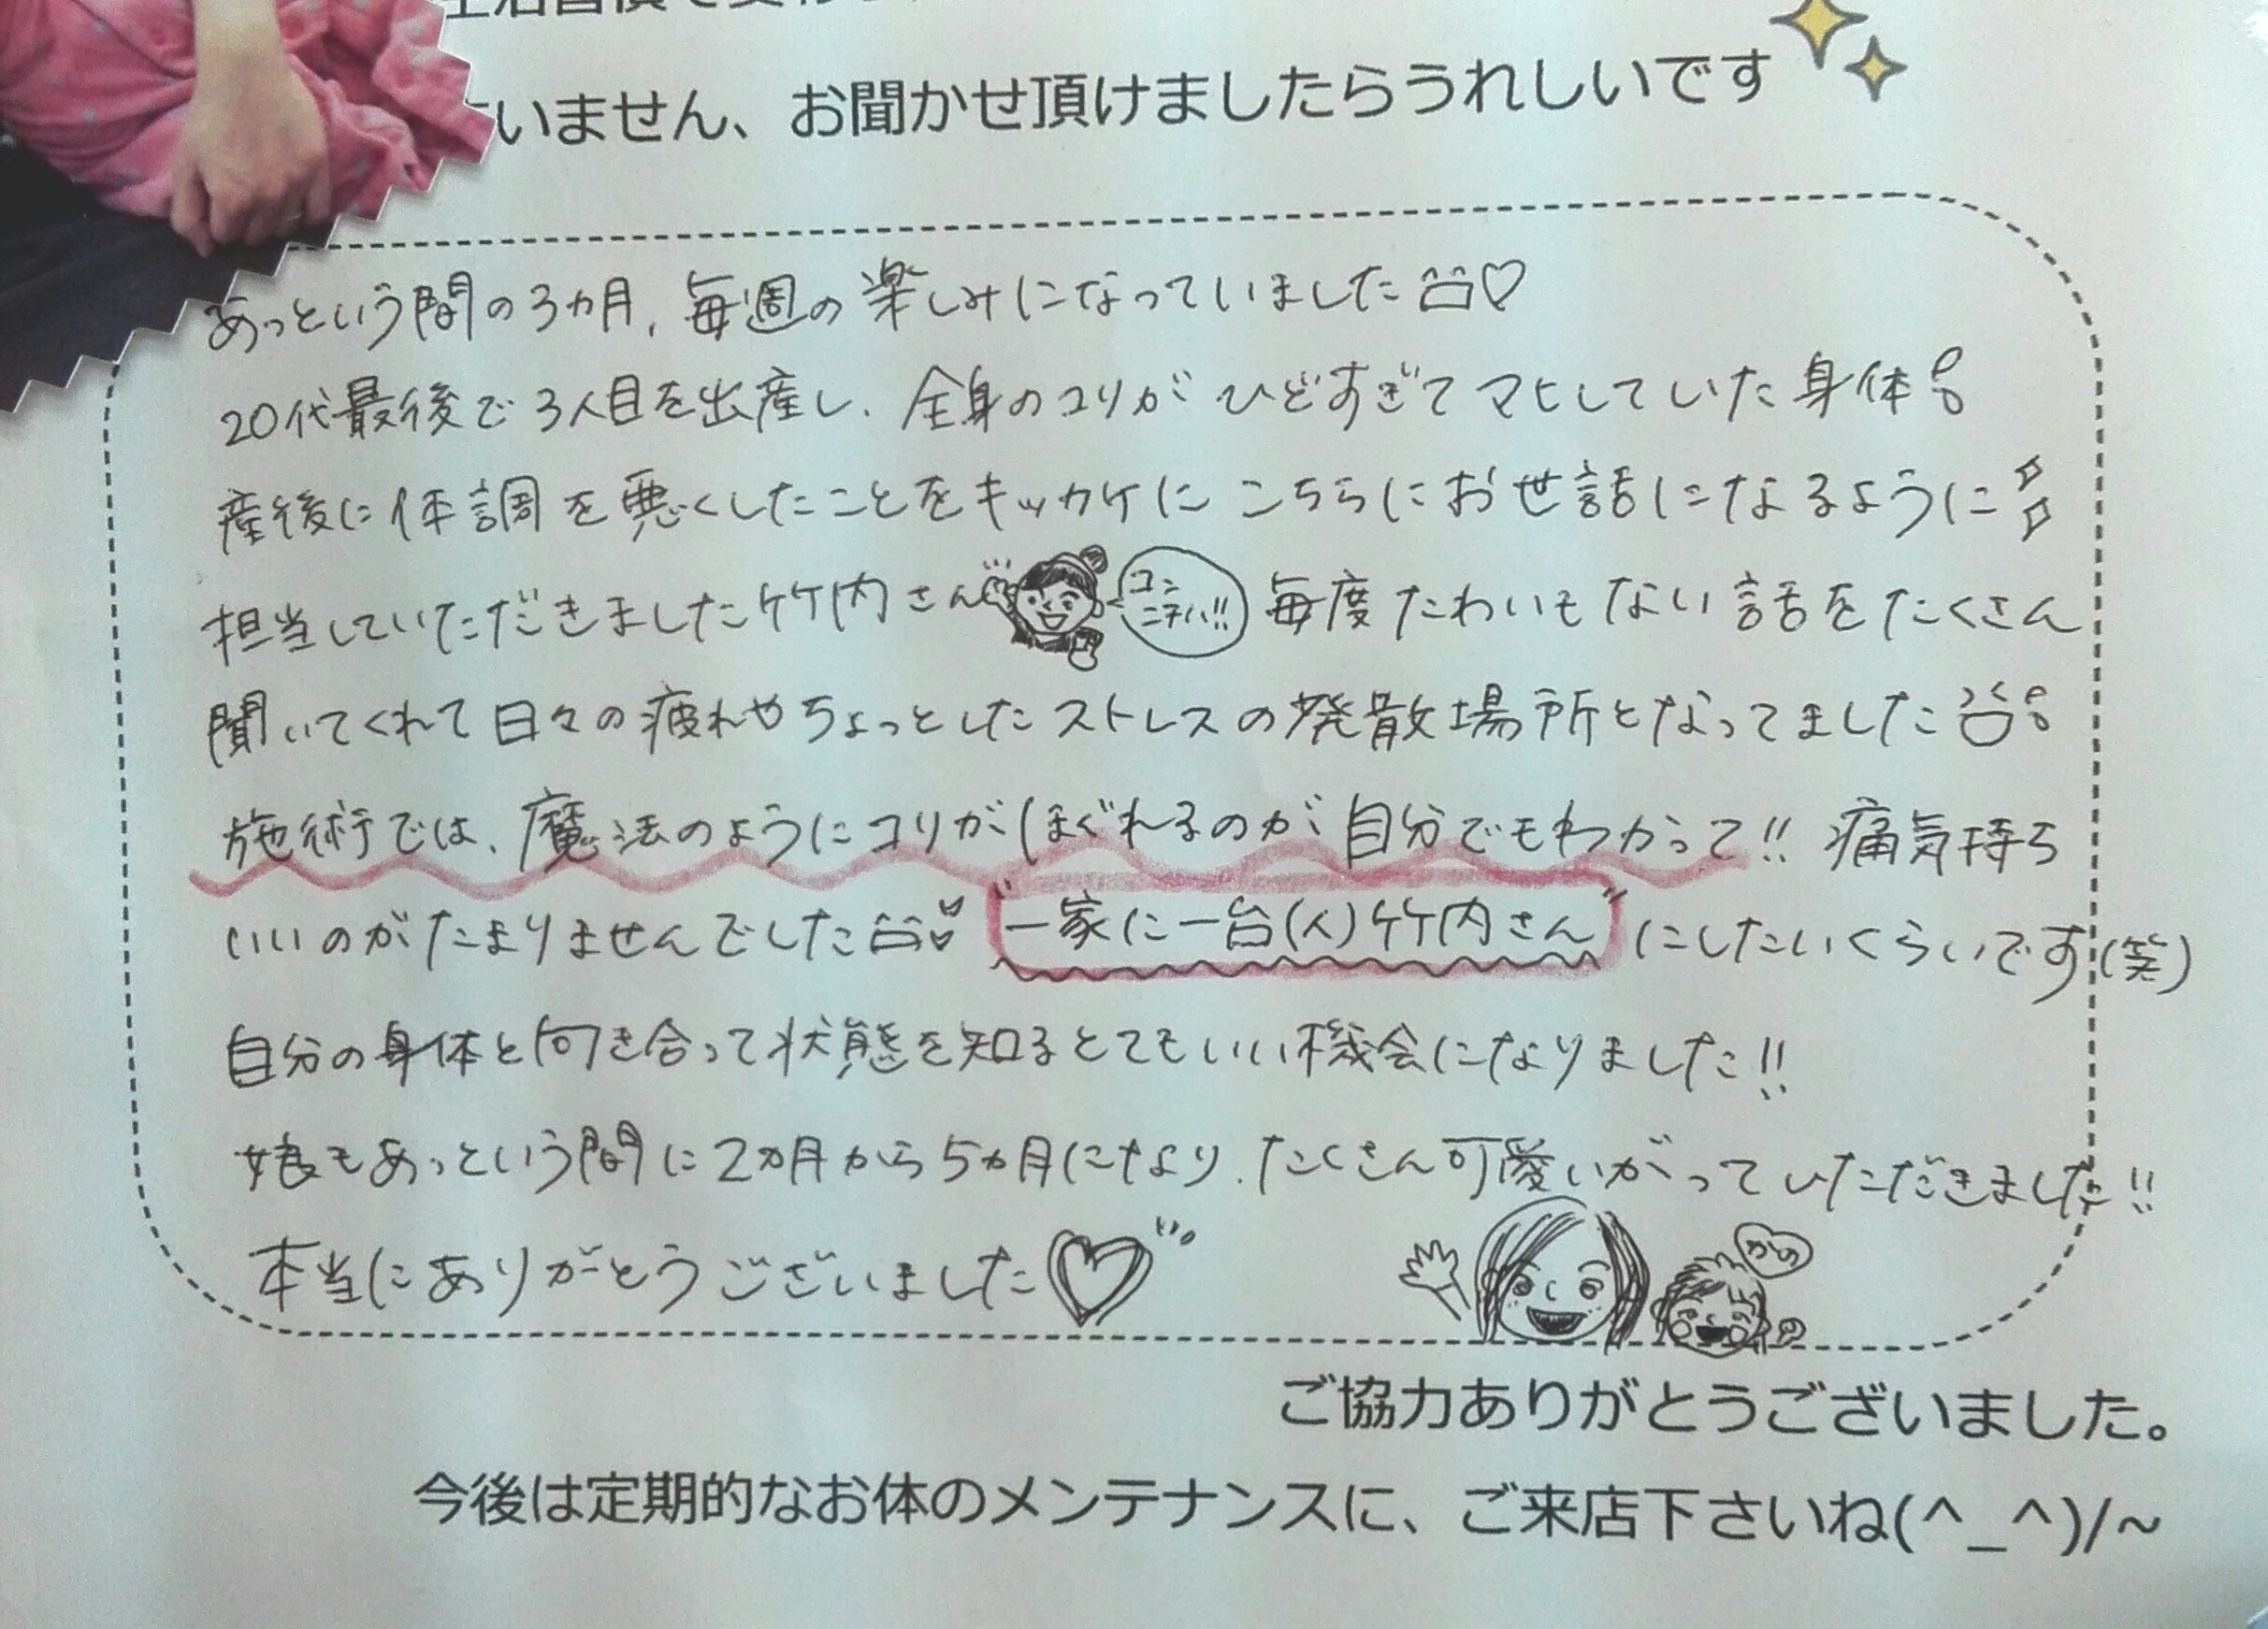 いません、お聞かせ頂けましたらうれしいです
あっという間の3カ月、毎週の楽しみになっていました♡
20代最後で3人目を出産し、全身のコリがひどすぎてマヒしていた身体
産後に体調を悪くしたことをキッカケにこちらにお世話になるように
担当していただきました竹内さん コンニチハ!! 毎度たわいもない話をたくさん
聞いてくれて日々の疲れやちょっとしたストレスの発散場所となってました
施術では、魔法のようにコリがほぐれるのが自分でもわかって!! 痛気持ち
いいのがたまりませんでした "一家に一台(人)竹内さん" にしたいくらいです(笑)
自分の身体と向き合って状態を知るとてもいい機会になりました!!
娘もあっという間に2カ月から5カ月になり、たくさん可愛いがっていただきました!!
本当にありがとうございました♡
ご協力ありがとうございました。
今後は定期的なお体のメンテナンスに、ご来店下さいね(^_^)/~